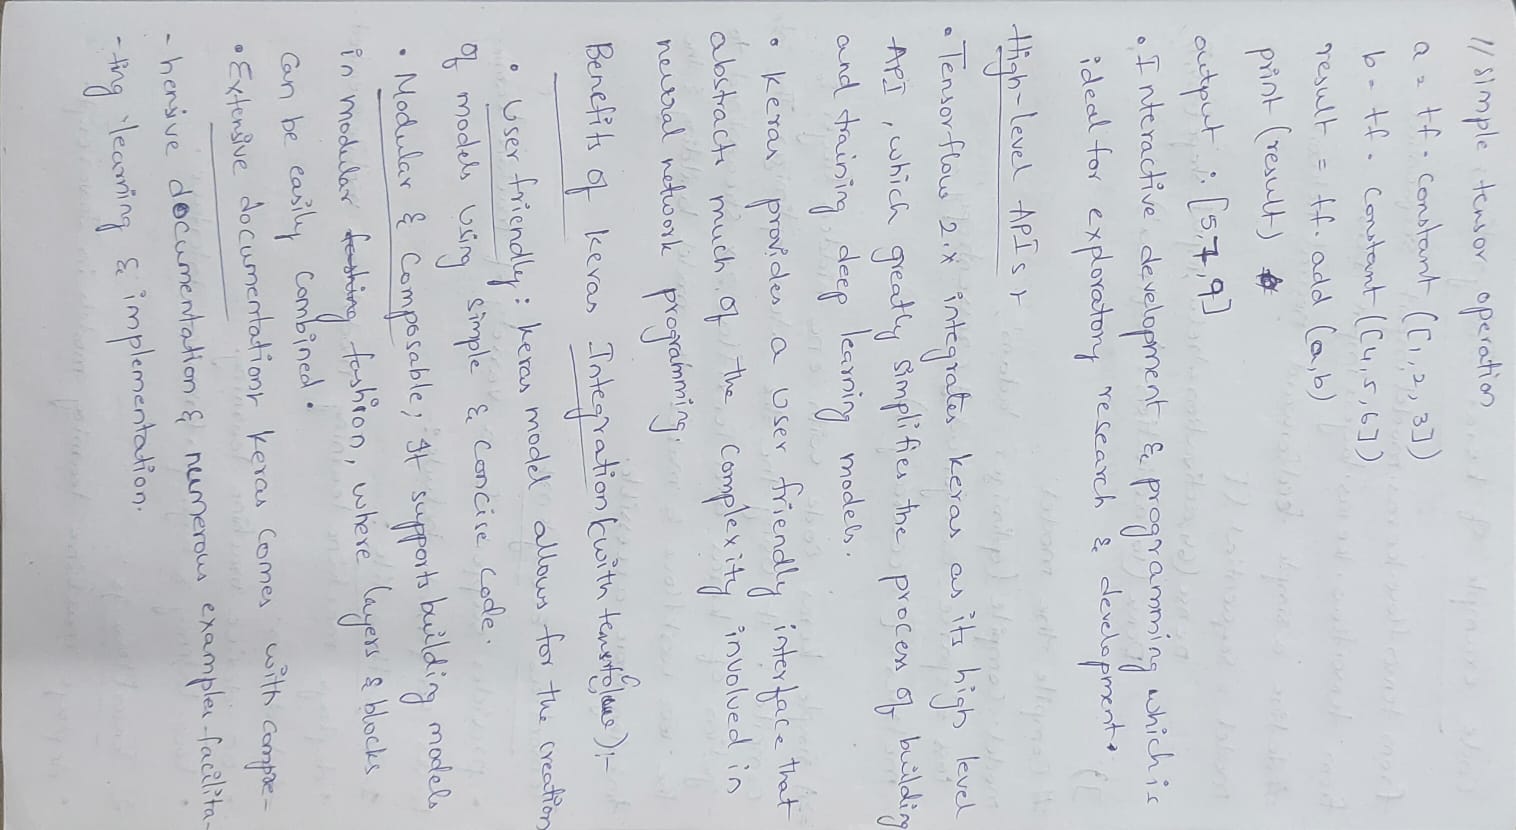 // simple tensor operation
a = tf. constant ([1, 2, 3])
b = tf. constant ([4, 5, 6])
result = tf. add (a,b)
print (result)
output : [5,7,9]
• Interactive development & programming which is
ideal for exploratory research & development.
High-level APIs :
• Tensorflow 2.x integrates keras as its high level
API, which greatly simplifies the process of building
and training deep learning models.
• Keras provides a User friendly interface that
abstracts much of the complexity involved in
neural network programming.
Benefits of Keras Integration (with ):-
• User friendly: keras model allows for the creation
of models using simple & concise code.
• Modular & Composable; It supports building models
in modular fashion, where layers & blocks
can be easily combined.
• Extensive documentation: keras comes with compre-
- hensive documentation & numerous examples facilita-
- ting learning & implementation.